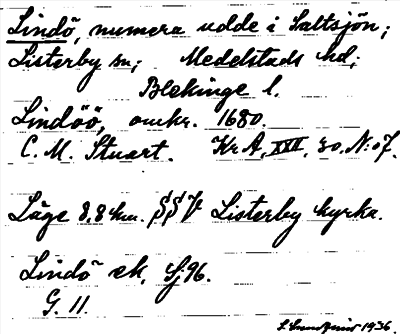 Lindö, numera udde i Saltsjön;
Listerby sn; Medelstads hd;
Blekinge l.
Lindöö, omkr. 1680.
C. M. Stuart. Kr A, XXII, 30, N:o 7.
Läge 8,8 km. SSV Listerby kyrka.
Lindö ek. bl. 96.
G. 11.
1936.